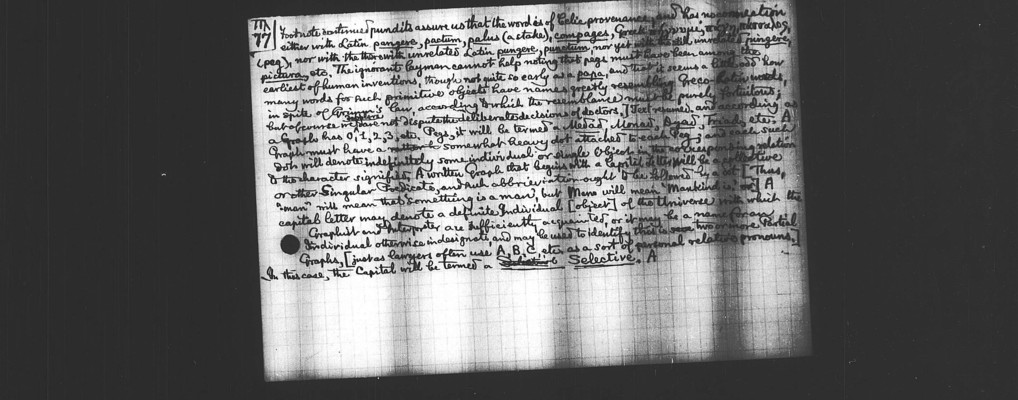 77
Footnote continued] pundits assure us that the word is of Celtic provenance, and has no connection
either with Latin pangere, pactum, palus (a stake), compages, Greek
(peg), nor with the therewith unrelated Latin pungere, punctum, nor yet with unrelated pingere,
pictura, etc. The ignorant layman cannot help noting that pegs must have been among the
earliest of human inventions, though not quite so early as a papa, and that it seems a little odd how
many words for such primitive objects have names greatly resembling Greco-Latin words,
in spite of Grimm's law, according to which the resemblance must be purely fortuitous;
but of course we dare not dispute the deliberate decisions of doctors.] [Text resumed.] and according as
a Graph has 0, 1, 2, 3, etc. Pegs, it will be termed a Medad, Monad, Dyad, Triad, etc. A
Graph must have a somewhat heavy dot attached to each Peg; and each such
dot will denote indefinitely some individual or single object in the corresponding relation
to the character signified. A written Graph that begins with a Capital letter will be a collective
or other Singular Predicate, and such abbreviation ought to be followed by a dot [Thus,
"man" will mean that something is a man, but Man. will mean "Mankind is," etc.] A
capital letter may denote a definite Individual [object] of the Universe with which the
Graphist and Interpreter are sufficiently acquainted, or it may be a name for any
Individual otherwise indesignate and may be used to identify two or more Partial
Graphs, [just as lawyers often use A, B, C, etc. as a sort of personal relative pronouns.]
In this case, the Capital will be termed a Selective. A